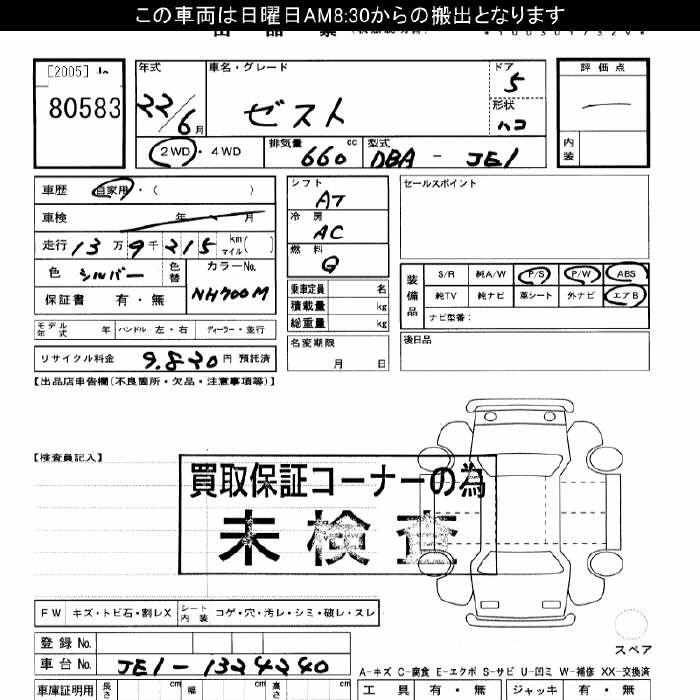 この車両は日曜日AM8:30からの搬出となります
[2005]
80583
年式
22/6月
2WD・4WD
車名・グレード
ゼスト
ドア
5
形状
ハコ
排気量 660 cc
型式 DBA - JE1
評価点
内装
車歴 自家用・( )
車検 年 月
走行 13万9千215 km マイル( )
色 シルバー 色替
カラーNo. NH700M
保証書 有・無
モデル年式 年 ハンドル 左・右 ディーラー・並行
リサイクル料金 9.820円 預託済
シフト
AT
冷房
AC
燃料
G
乗車定員 名
積載量 kg
総重量 kg
名変期限
月 日
セールスポイント
装備品
S/R 純A/W P/S P/W ABS
純TV 純ナビ 革シート 外ナビ エアB
ナビ型番:
後日品
【出品店申告欄(不良箇所・欠品・注意事項等)】
【検査員記入】
買取保証コーナーの為
未検査
FW キズ・トビ石・割レX シート内装 コゲ・穴・汚レ・シミ・破レ・スレ
登録No.
車台No. JE1-1324240
スペア
A-キズ C-腐食 E-エクボ S-サビ U-凹ミ W-補修 XX-交換済
車庫証明用 長さ cm 幅 cm 高さ cm
工具 有・無 ジャッキ 有・無